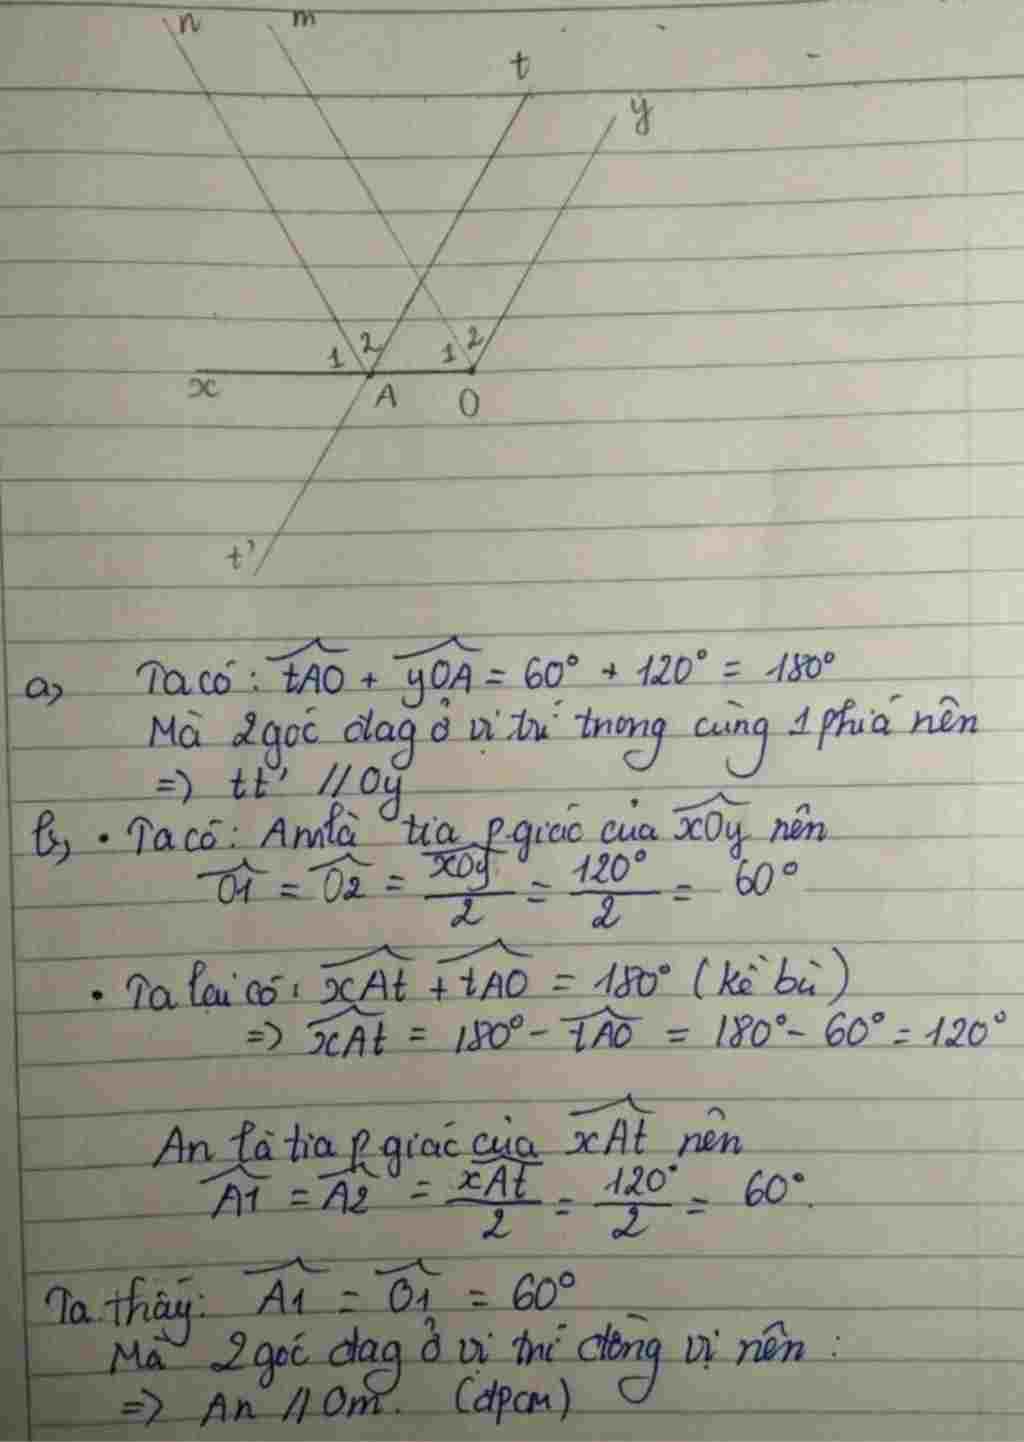 n m
t
y
1 2 1 2
x A O
t'
a, Ta có: tAO + yOA = 60° + 120° = 180°
Mà 2 góc đag ở vị trí trong cùng 1 phía nên
=> tt' // Oy
b, • Ta có: Om là tia p.giác của xOy nên
O1 = O2 = xOy/2 = 120°/2 = 60°
• Ta lại có: xAt + tAO = 180° (kề bù)
=> xAt = 180° - tAO = 180° - 60° = 120°
An là tia p.giác của xAt nên
A1 = A2 = xAt/2 = 120°/2 = 60°.
Ta thấy: A1 = O1 = 60°
Mà 2 góc đag ở vị trí đồng vị nên :
=> An // Om. (đpcm)